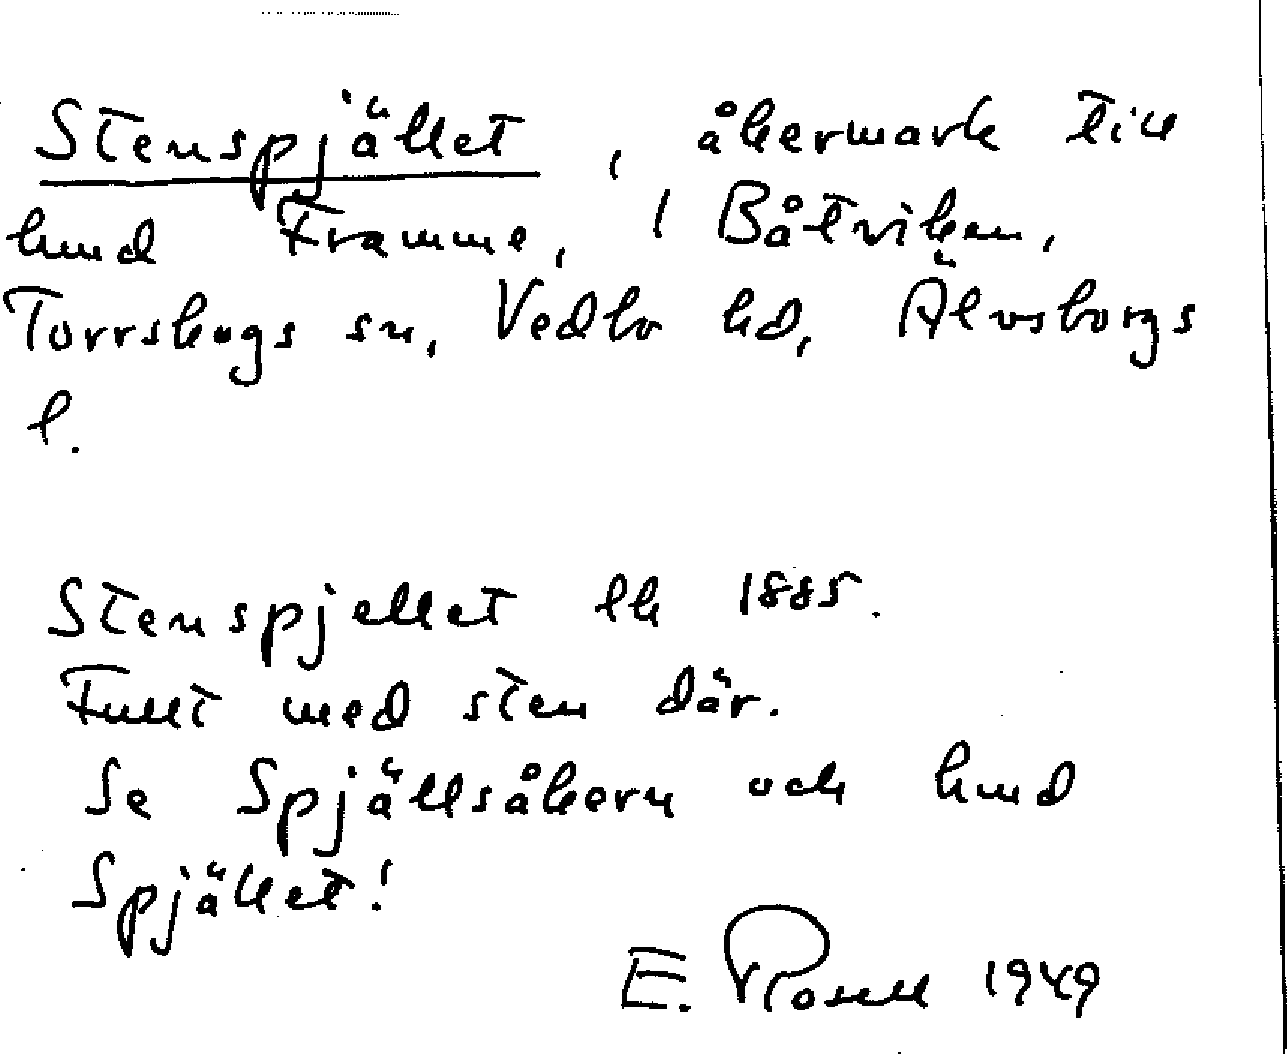 Stenspjället, åkermark till
hmd Framme, 1 Båtviken,
Torrskogs sn, Vedbo hd, Älvsborgs
l.
Stenspjellet lk 1885.
Fullt med sten där.
Se Spjällsåkern och hmd
Spjället!
E. Rosell 1949